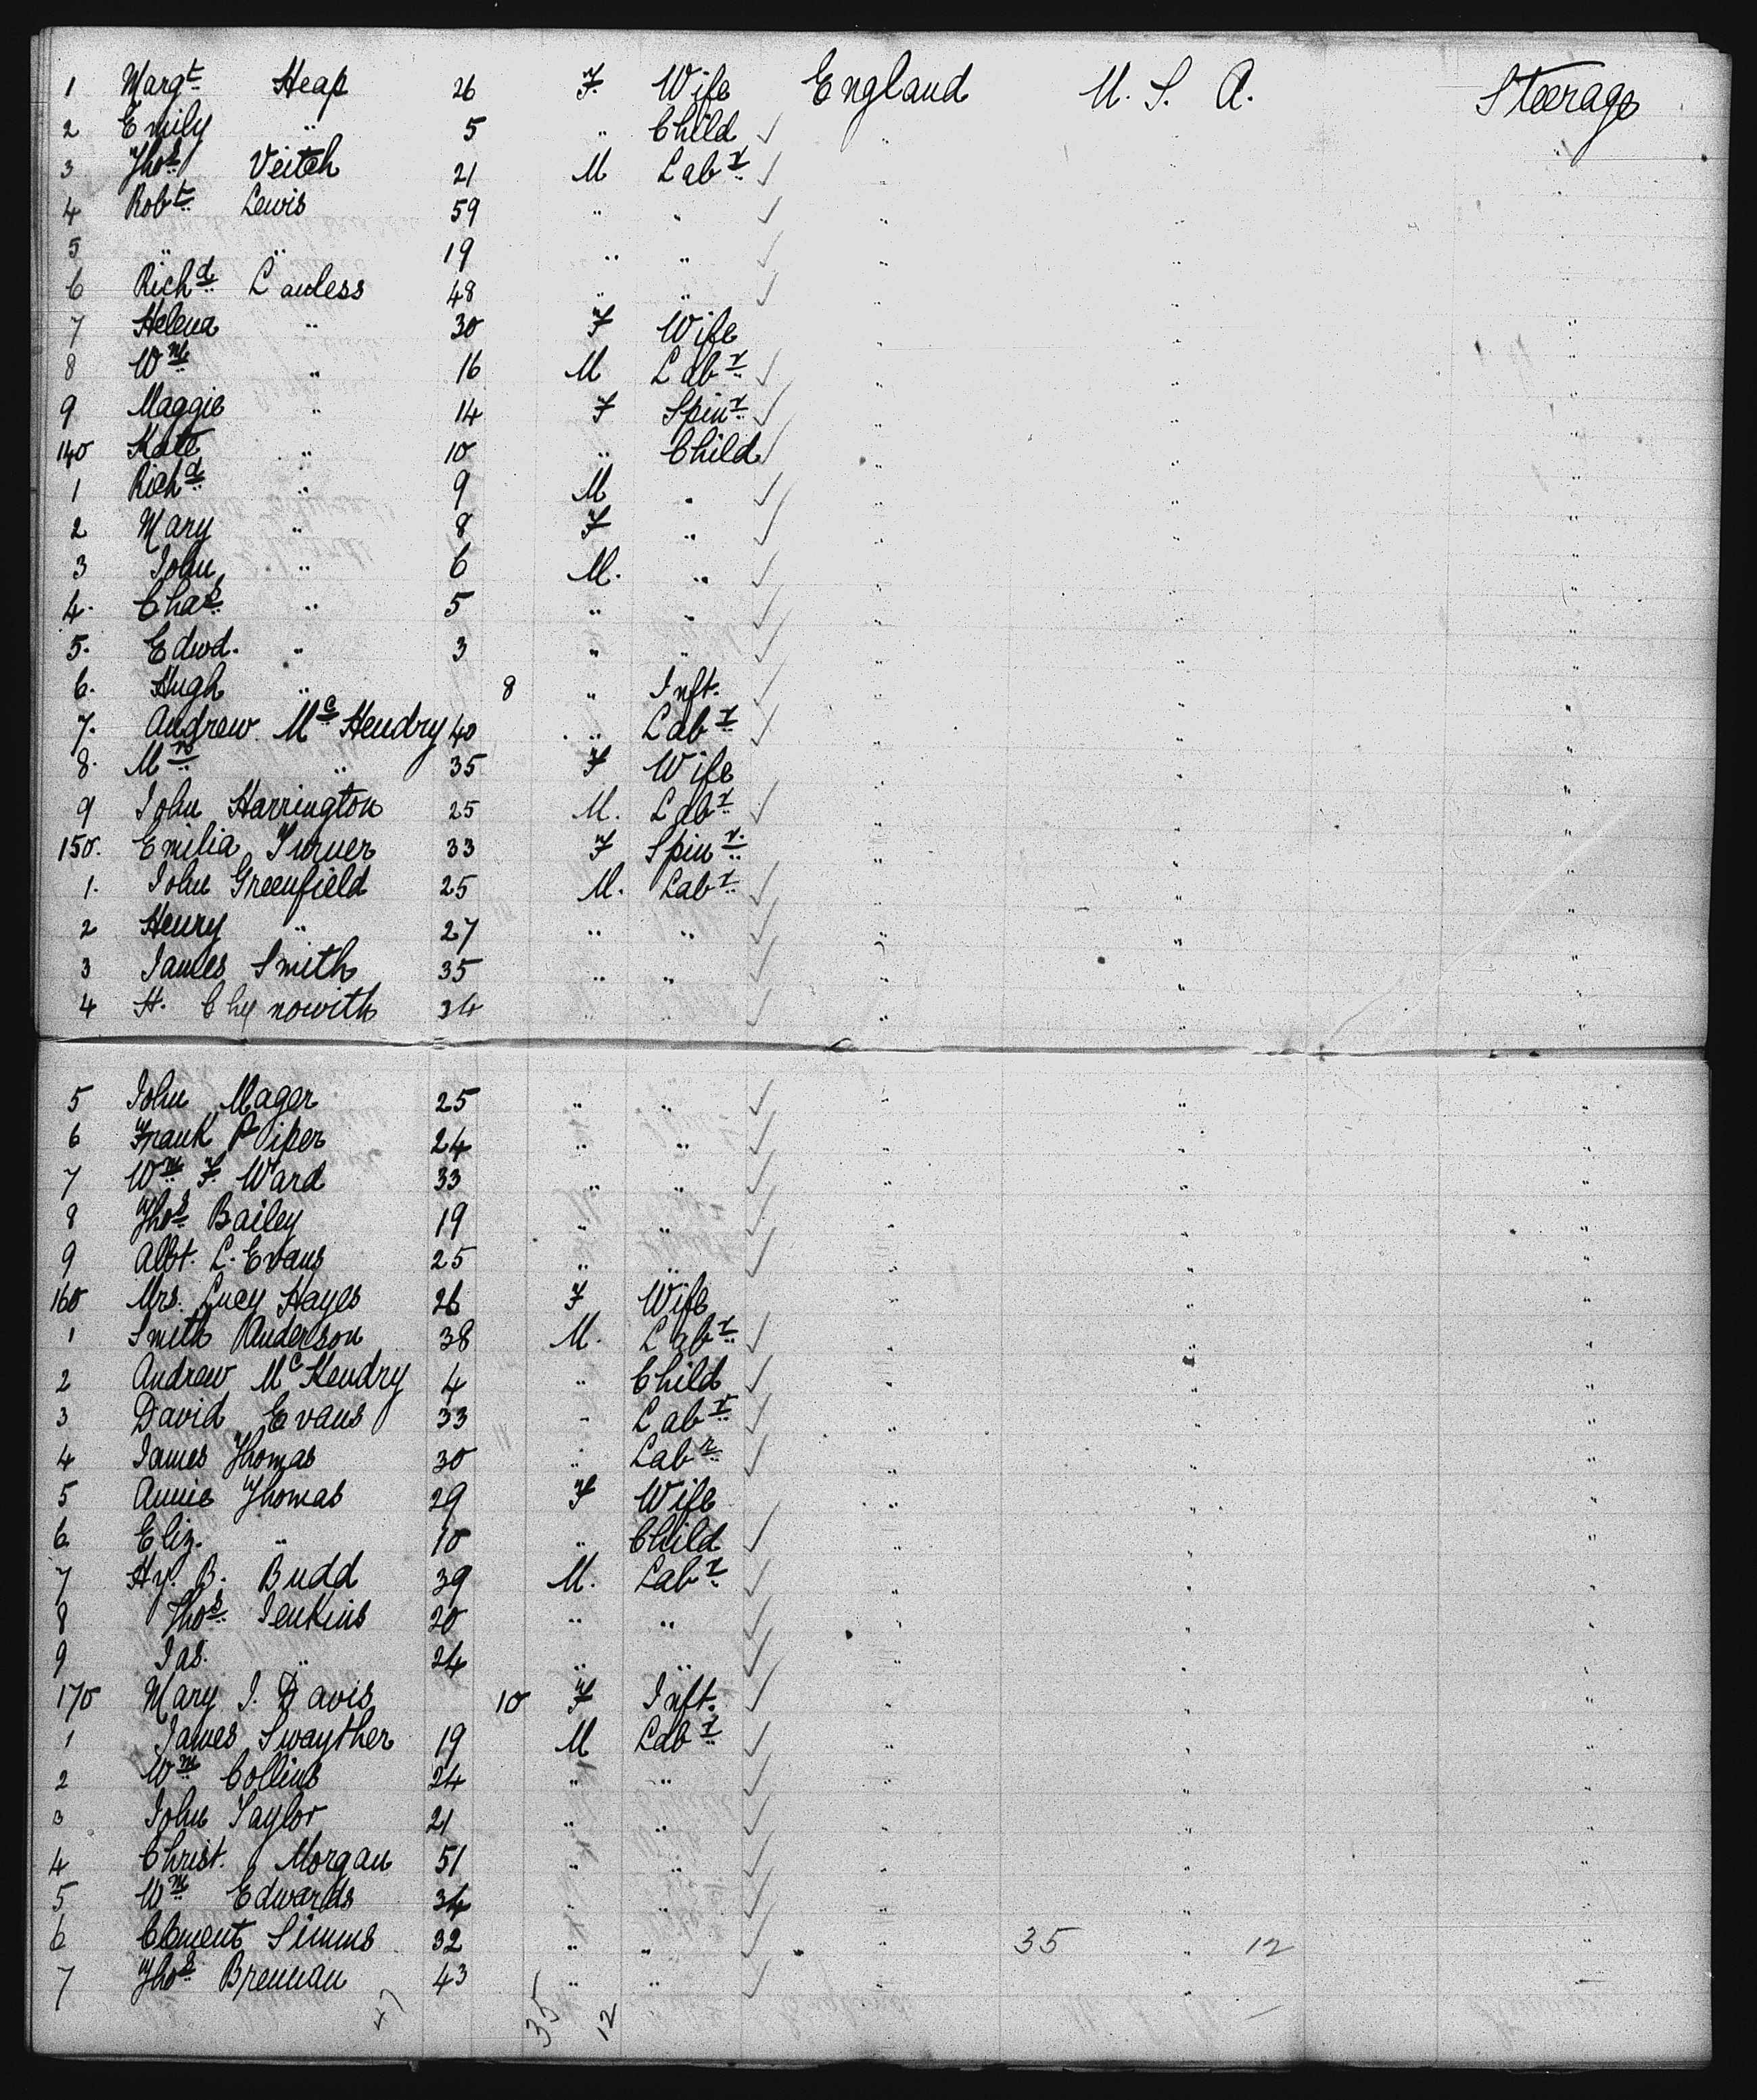 1 Margt Heap 26 F. Wife England U. S. A. Steerage
2 Emily " 5 " Child " " "
3 Thos Veitch 21 M Labr " " "
4 Robt Lewis 59 " " " " "
5 " " 19 " " " " "
6 Richd Lawless 48 " " " " "
7 Helena " 30 F Wife " " "
8 Wm " 16 M Labr " " "
9 Maggie " 14 F Spinr " " "
140 Kate " 10 " Child " " "
1 Richd " 9 M " " " "
2 Mary " 8 F " " " "
3 John " 6 M. " " " "
4. Chas " 5 " " " " "
5. Edwd. " 3 " " " " "
6. Hugh " 8 " Inft. " " "
7. Andrew McHendry 40 " Labr " " "
8. Mrs " 35 F Wife " " "
9 John Harrington 25 M. Labr " " "
150. Emilia Turner 33 F Spinr. " " "
1. John Greenfield 25 M. Labr " " "
2 Henry " 27 " " " " "
3 James Smith 35 " " " " "
4 H. Chynowith 34 " " " " "
5 John Mager 25 " " " " "
6 Frank Piper 24 " " " " "
7 Wm F. Ward 33 " " " " "
8 Thos Bailey 19 " " " " "
9 Albt. L. Evans 25 " " " " "
160 Mrs. Lucy Hayes 26 F Wife " " "
1 Smith Anderson 38 M. Labr " " "
2 Andrew McHendry 4 " Child " " "
3 David Evans 33 " Labr " " "
4 James Thomas 30 " Labr " " "
5 Annie Thomas 29 F Wife " " "
6 Eliz. " 10 " Child " " "
7 Hy. B. Budd 39 M. Labr " " "
8 Thos Jenkins 20 " " " " "
9 Jas. " 24 " " " " "
170 Mary J. Davis 10 F Inft. " " "
1 James Swayther 19 M Labr " " "
2 Wm Collins 24 " " " " "
3 John Taylor 21 " " " " "
4 Christ. Morgan 51 " " " " "
5 Wm Edwards 34 " " " " "
6 Clement Simms 32 " " " 35 " 12 "
7 Thos Brennan 43 " " " " "
47 35 12